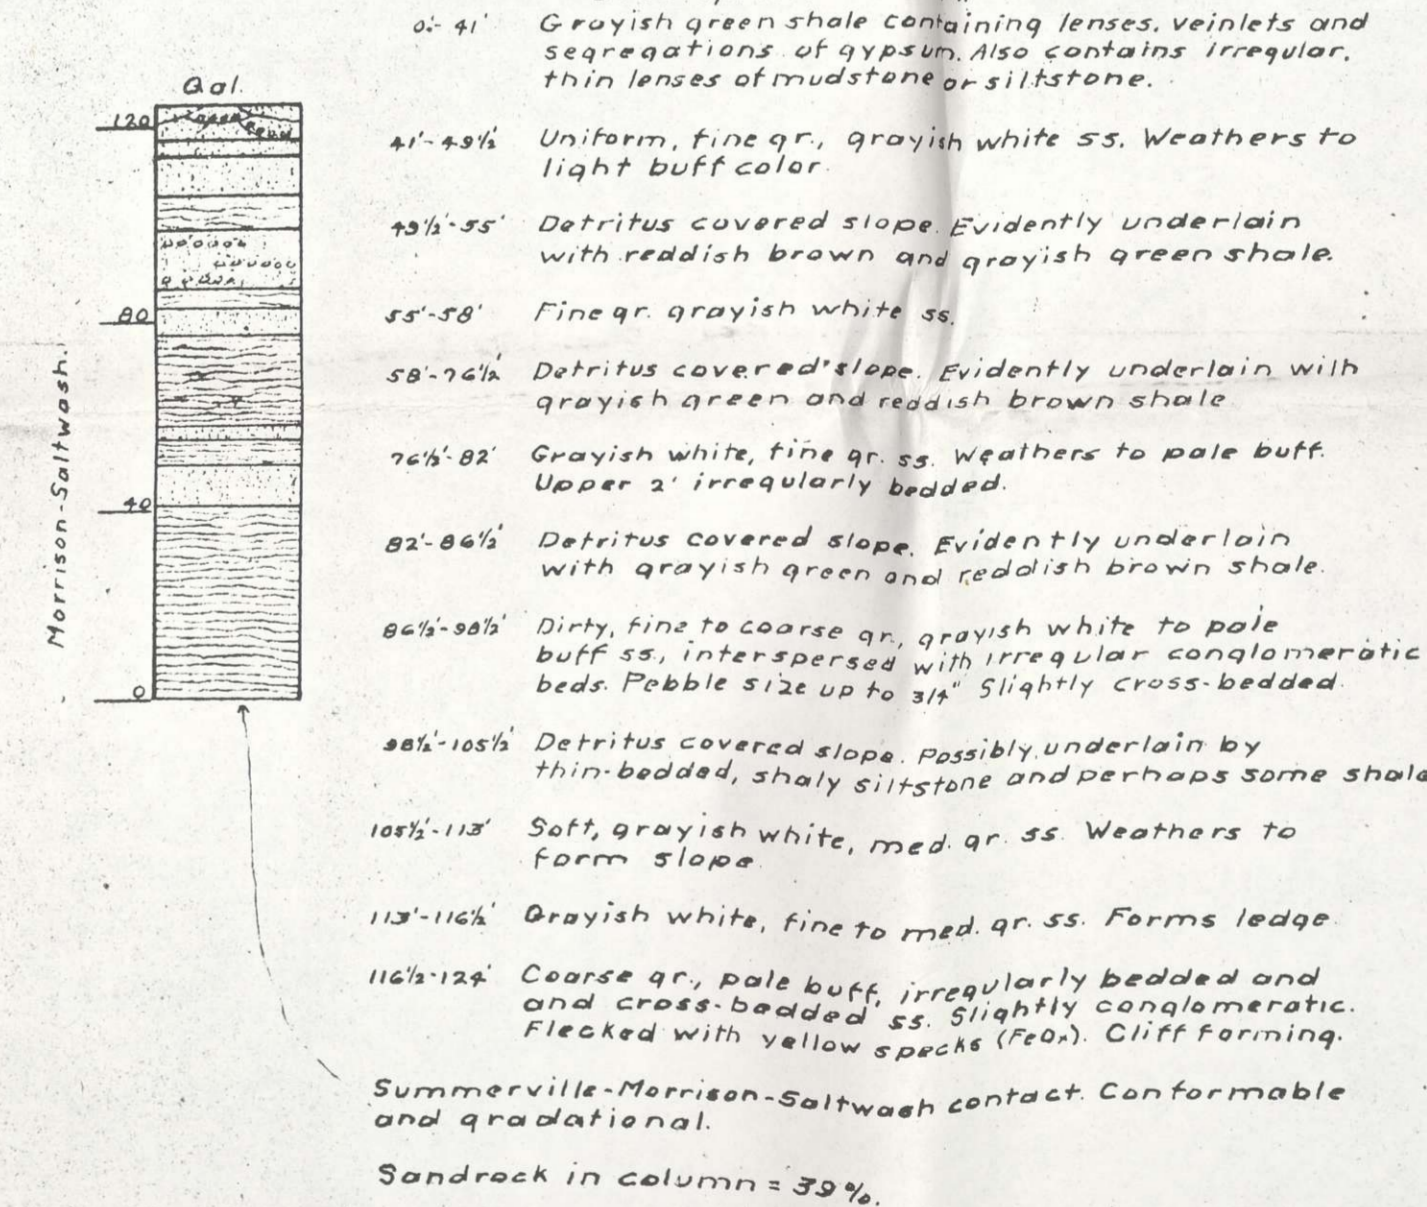 Qal.
120
80
40
0
Morrison-Saltwash.
0'- 41' Grayish green shale containing lenses, veinlets and
segregations of gypsum. Also contains irregular,
thin lenses of mudstone or siltstone.
41'-49½' Uniform, fine gr., grayish white ss. Weathers to
light buff color.
49½'-55' Detritus covered slope. Evidently underlain
with reddish brown and grayish green shale.
55'-58' Fine gr. grayish white ss.
58'-76½' Detritus covered slope. Evidently underlain with
grayish green and reddish brown shale
76½'-82' Grayish white, fine gr. ss. Weathers to pale buff.
Upper 2' irregularly bedded.
82'-86½' Detritus covered slope. Evidently underlain
with grayish green and reddish brown shale.
86½'-98½' Dirty, fine to coarse gr., grayish white to pale
buff ss., interspersed with irregular conglomeratic
beds. Pebble size up to 3/4" Slightly cross-bedded.
98½'-105½' Detritus covered slope. Possibly underlain by
thin-bedded, shaly siltstone and perhaps some shale
105½'-113' Soft, grayish white, med. gr. ss. Weathers to
form slope.
113'-116½' Grayish white, fine to med. gr. ss. Forms ledge.
116½'-124' Coarse gr., pale buff, irregularly bedded and
and cross-bedded ss. Slightly conglomeratic.
Flecked with yellow specks (FeOx). Cliff forming.
Summerville-Morrison-Saltwash contact. Conformable
and gradational.
Sandrock in column = 39%.